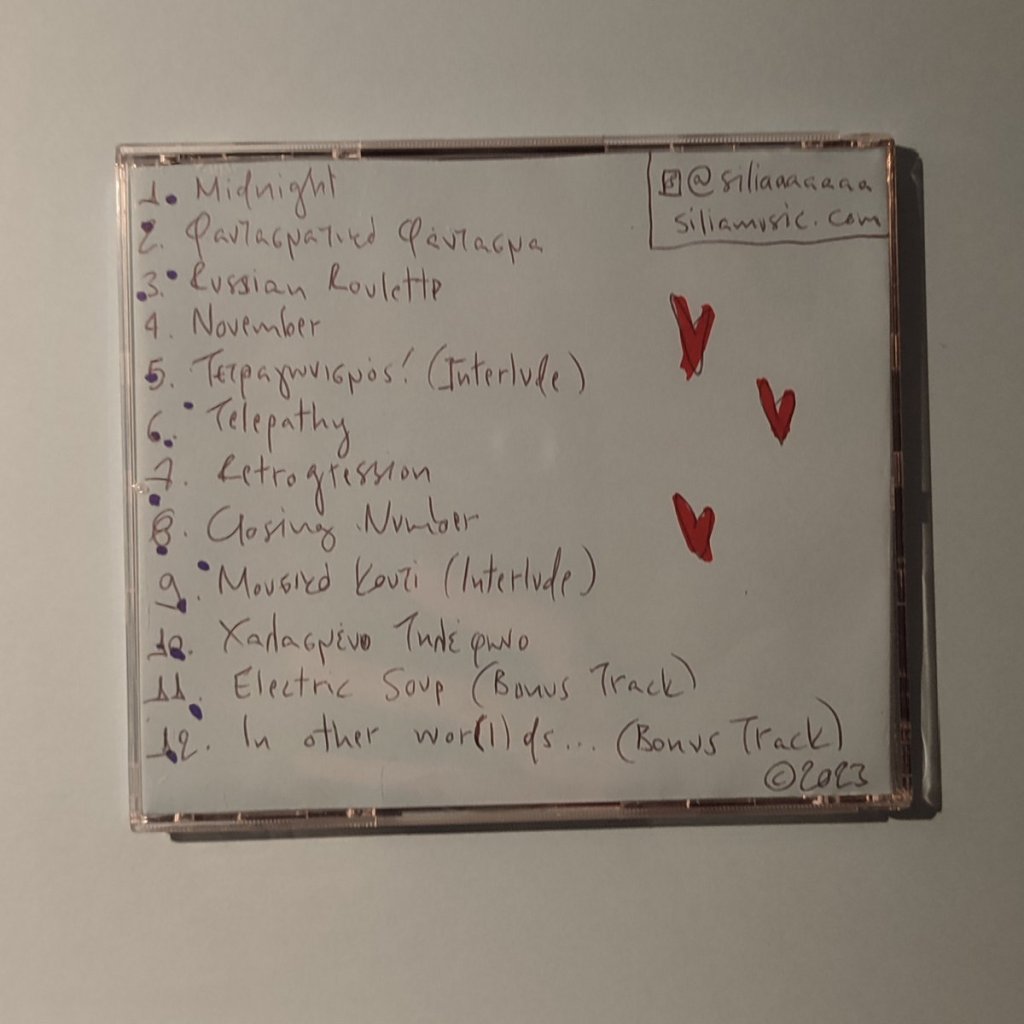 1. Midnight
2. Φαντασματικό Φάντασμα
3. Russian Roulette
4. November
5. Τετραγωνισμός! (Interlude)
6. Telepathy
7. Retrogression
8. Closing Number
9. Μουσικό Κουτί (Interlude)
10. Χαλασμένο Τηλέφωνο
11. Electric Soup (Bonus Track)
12. In other wor(l)ds... (Bonus Track)
©2023
@siliaaaaaaa
siliamusic.com